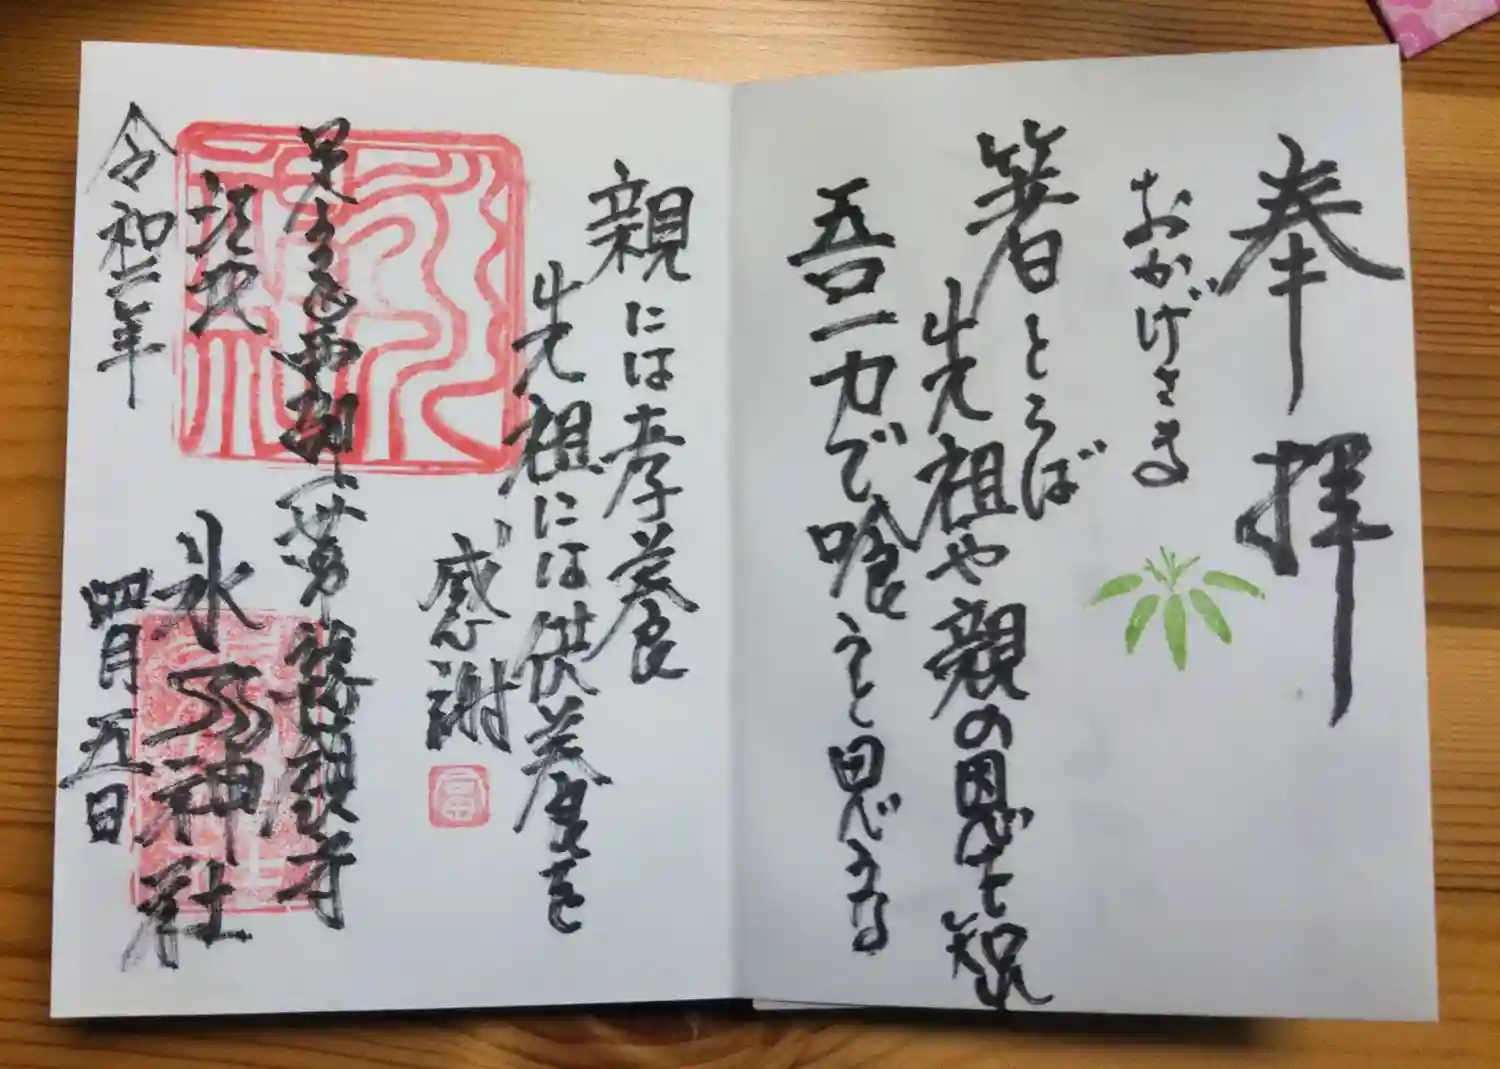 奉拝
おかげさま
箸とらば
先祖や親の恩を知れ
吾一力で喰うと思うな
親には孝養
先祖には供養を
感謝
氷川神社
令和二年
四月五日